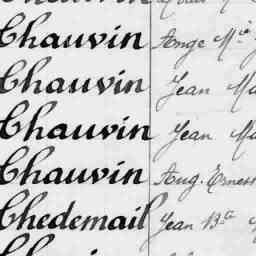 Chauvin Ange Mie
Chauvin Jean Ma
Chauvin Jean Ma
Chauvin Aug. Ernest
Chedemail Jean Bte